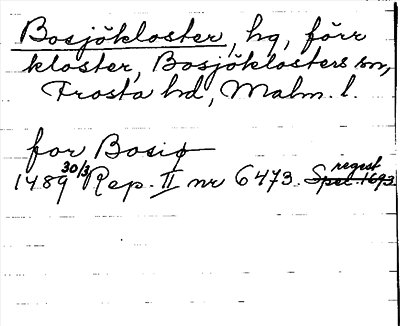 Bosjökloster, hg, förr
kloster, Bosjöklosters sn,
Frosta hd, Malm. l.
for Bosiø
1489 30/3 Rep. II nr 6473. regest
Spec. 1693